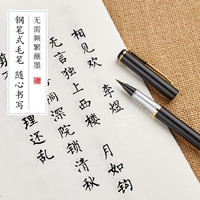 无需频繁蘸墨
钢笔式毛笔 随心书写
相见欢 李煜
月如钩
无言独上西楼
深院锁清秋
理还乱